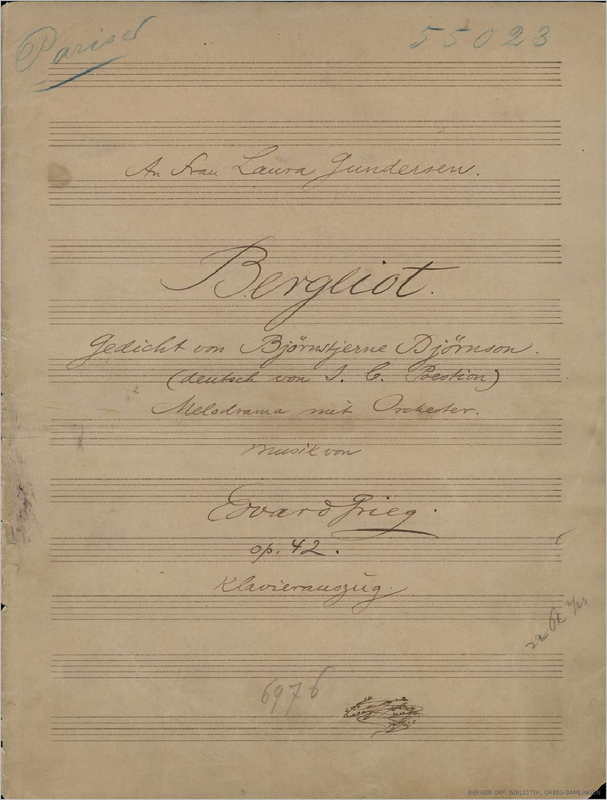 Pariser
55023
An Frau Laura Gundersen.
Bergliot.
Gedicht von Björnstjerne Björnson.
(deutsch von J. C. Poestion)
Melodrama mit Orchester.
Musik von
Edvard Grieg.
op. 42.
Klavierauszug.
6976
BERGEN OFF. BIBLIOTEK, GRIEG-SAMLINGEN